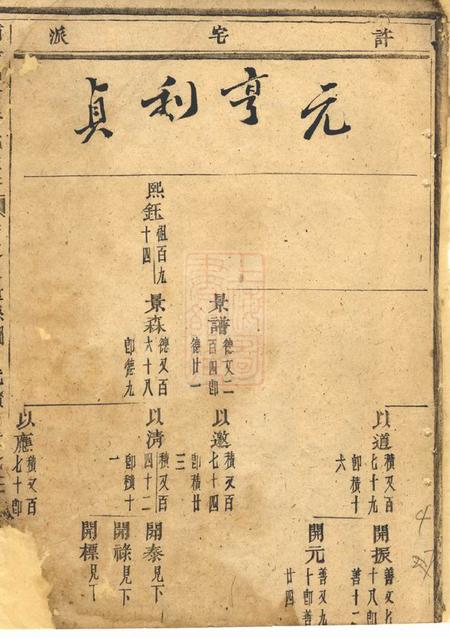 許宅派
元亨利貞
熙鈺 祖百九
十四
景譜 德又二
百四即
德廿一
景森 德又百
六十八
即德九
以道 積又百
七十九
即積十
六
以邀 積又百
七十四
即積廿
三
以清 積又百
四十二
即積十
一
以應 積又百
七十即
開振 善又七
十八即
善十二
開元 善又九
十即善
廿四
開泰 見下
開祿 見下
開標 見下